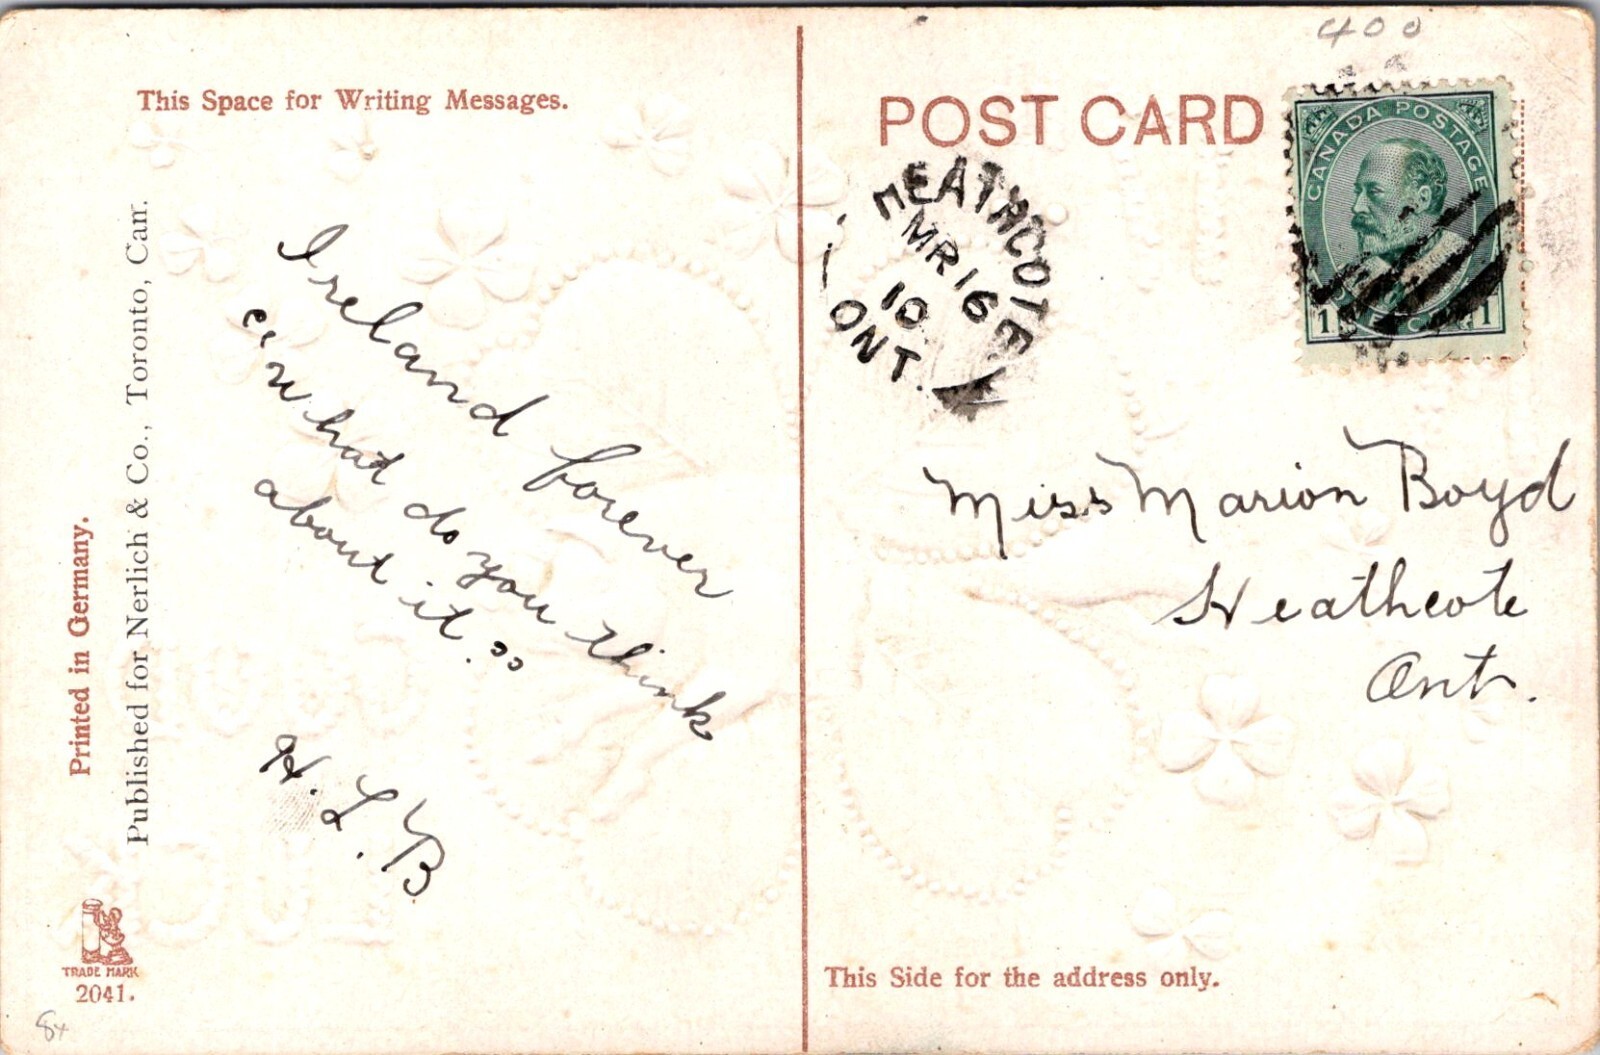 This Space for Writing Messages.
Ireland forever
"What do you think
about it."
H. L. B
Printed in Germany.
Published for Nerlich & Co., Toronto, Can.
TRADE MARK
2041.
400
POST CARD
CANADA POSTAGE
1 1
HEATHCOTE
MR 16
10
ONT.
Miss Marion Boyd
Heathcote
Ont.
This Side for the address only.